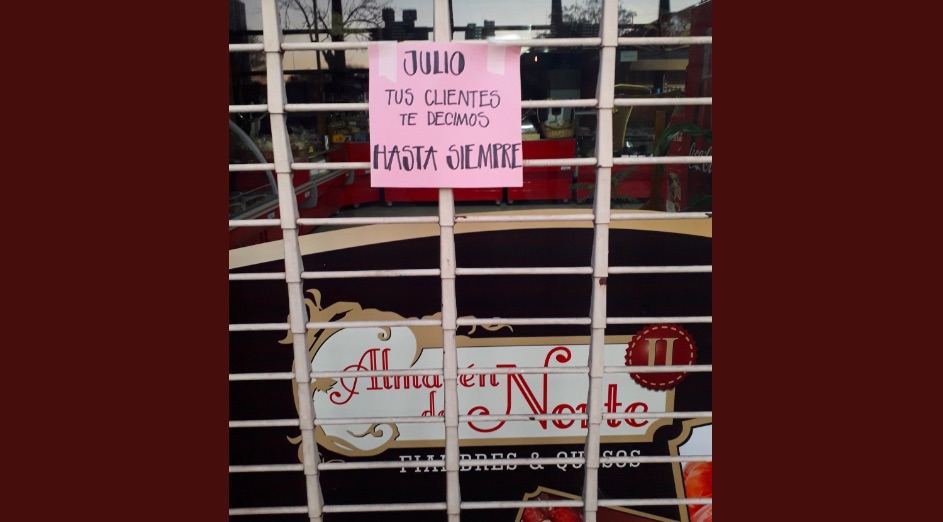 JULIO
TUS CLIENTES
TE DECIMOS
HASTA SIEMPRE
II
Almacén
del Norte
FIAMBRES & QUESOS